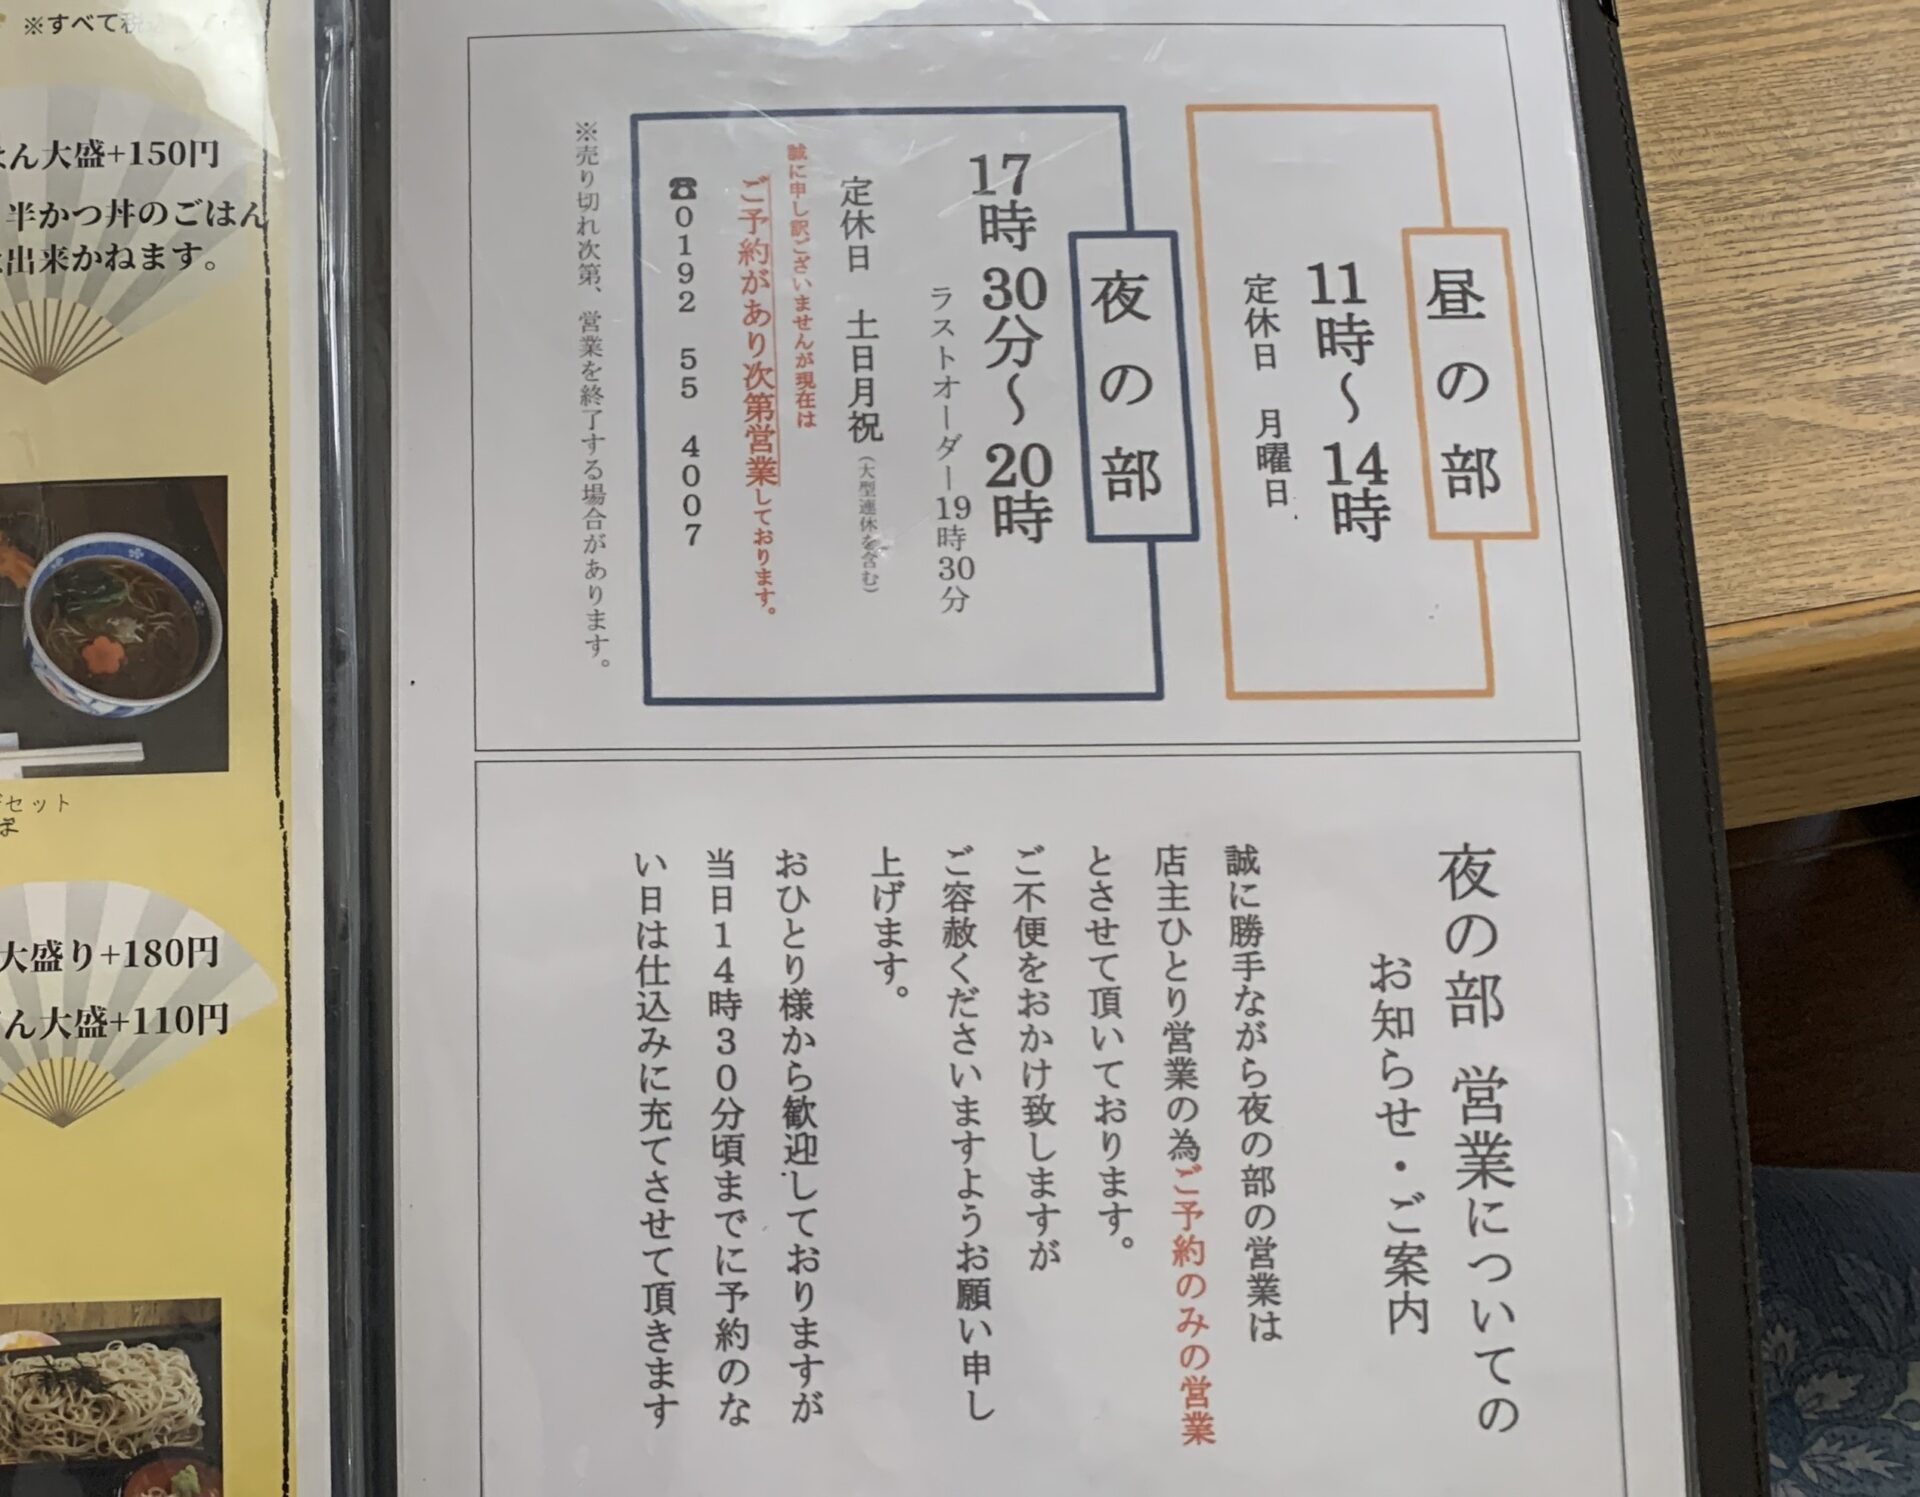 昼の部
11時～14時
定休日 月曜日
夜の部
17時30分～20時
ラストオーダー19時30分
定休日 土日月祝(大型連休を含む)
誠に申し訳ございませんが現在は
ご予約があり次第営業しております。
☎0192 55 4007
※売り切れ次第、営業を終了する場合があります。
夜の部 営業についての
お知らせ・ご案内
誠に勝手ながら夜の部の営業は
店主ひとり営業の為ご予約のみの営業
とさせて頂いております。
ご不便をおかけ致しますが
ご容赦くださいますようお願い申し
上げます。
おひとり様から歓迎しておりますが
当日14時30分頃までに予約のな
い日は仕込みに充てさせて頂きます
※すべて税
ん大盛+150円
半かつ丼のごはん
出来かねます。
セット
大盛り+180円
ん大盛+110円